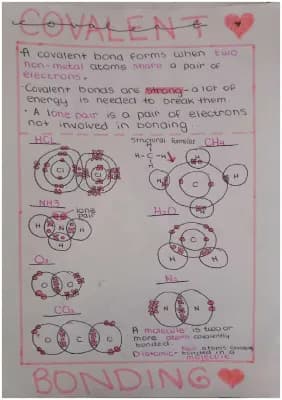 COVALENT
A covalent bond forms when two
non-metal atoms share a pair of
electrons.
Covalent bonds are strong - a lot of
energy is needed to break them.
A lone pair is a pair of electrons
not involved in bonding
HCl
Structural formula
CH4
H
H-C-H
H
Cl
Cl
H
C
H
H
NH3
lone
pair
H
N
H
H
H2O
C
O2
O
O
N2
N
N
CO2
O
C
O
A molecule is two or
more atoms covalently
bonded.
Diatomic - two atoms
bonded in a
molecule
BONDING